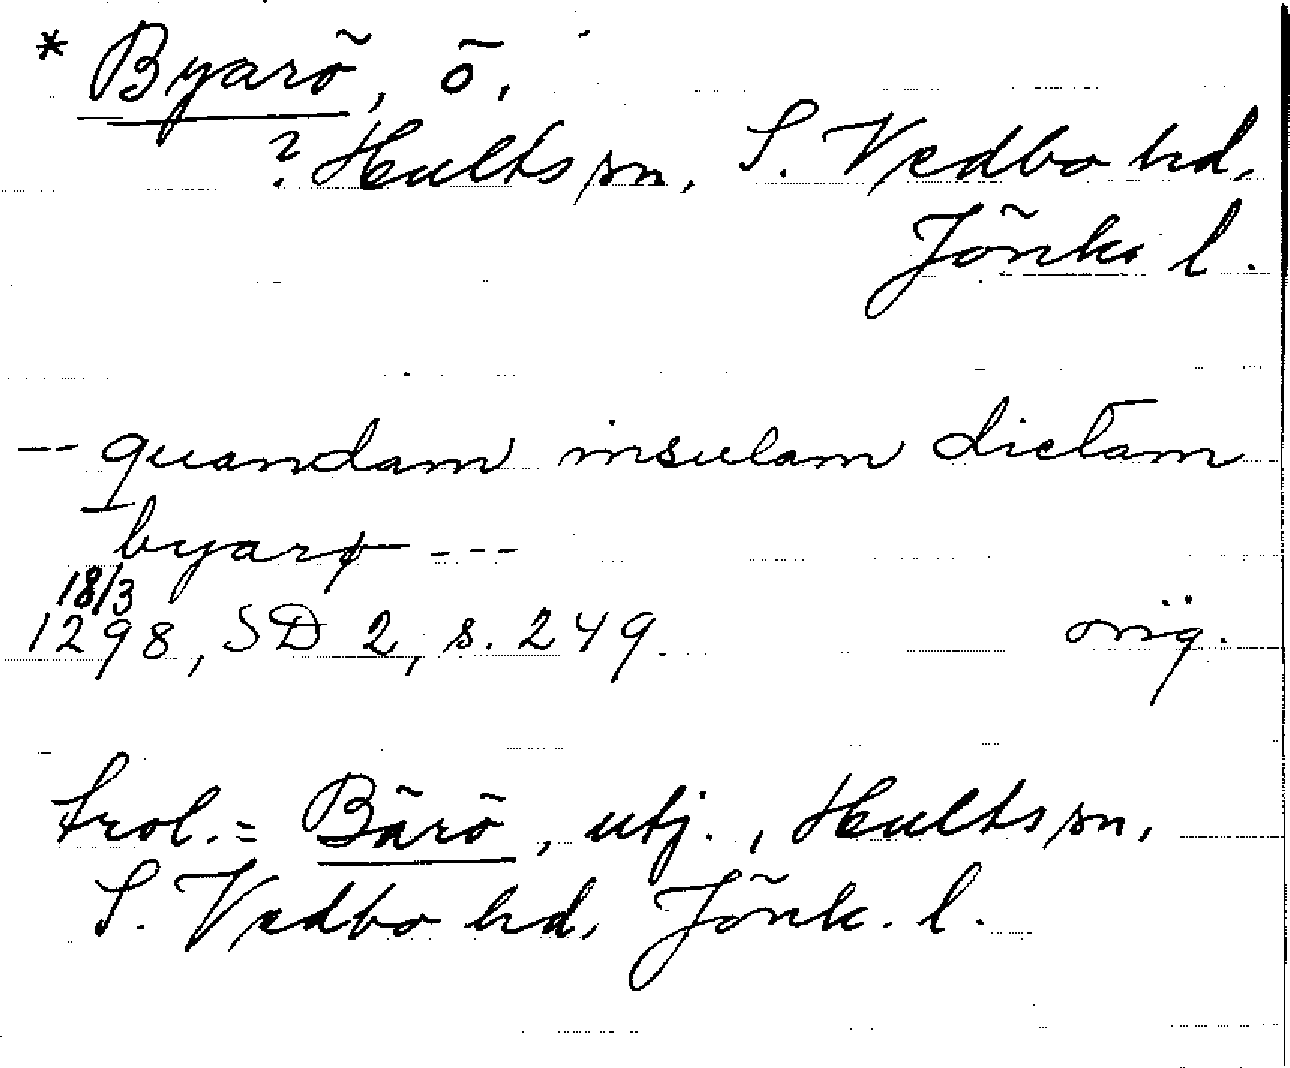 * Byarö, ö.
? Hults sn, S. Vedbo hd,
Jönk. l.
-- quandam insulam dictam
byarø ---
18/3
1298, SD 2, s. 249. orig.
trol. = Bärö, utj., Hults sn,
S. Vedbo hd, Jönk. l.